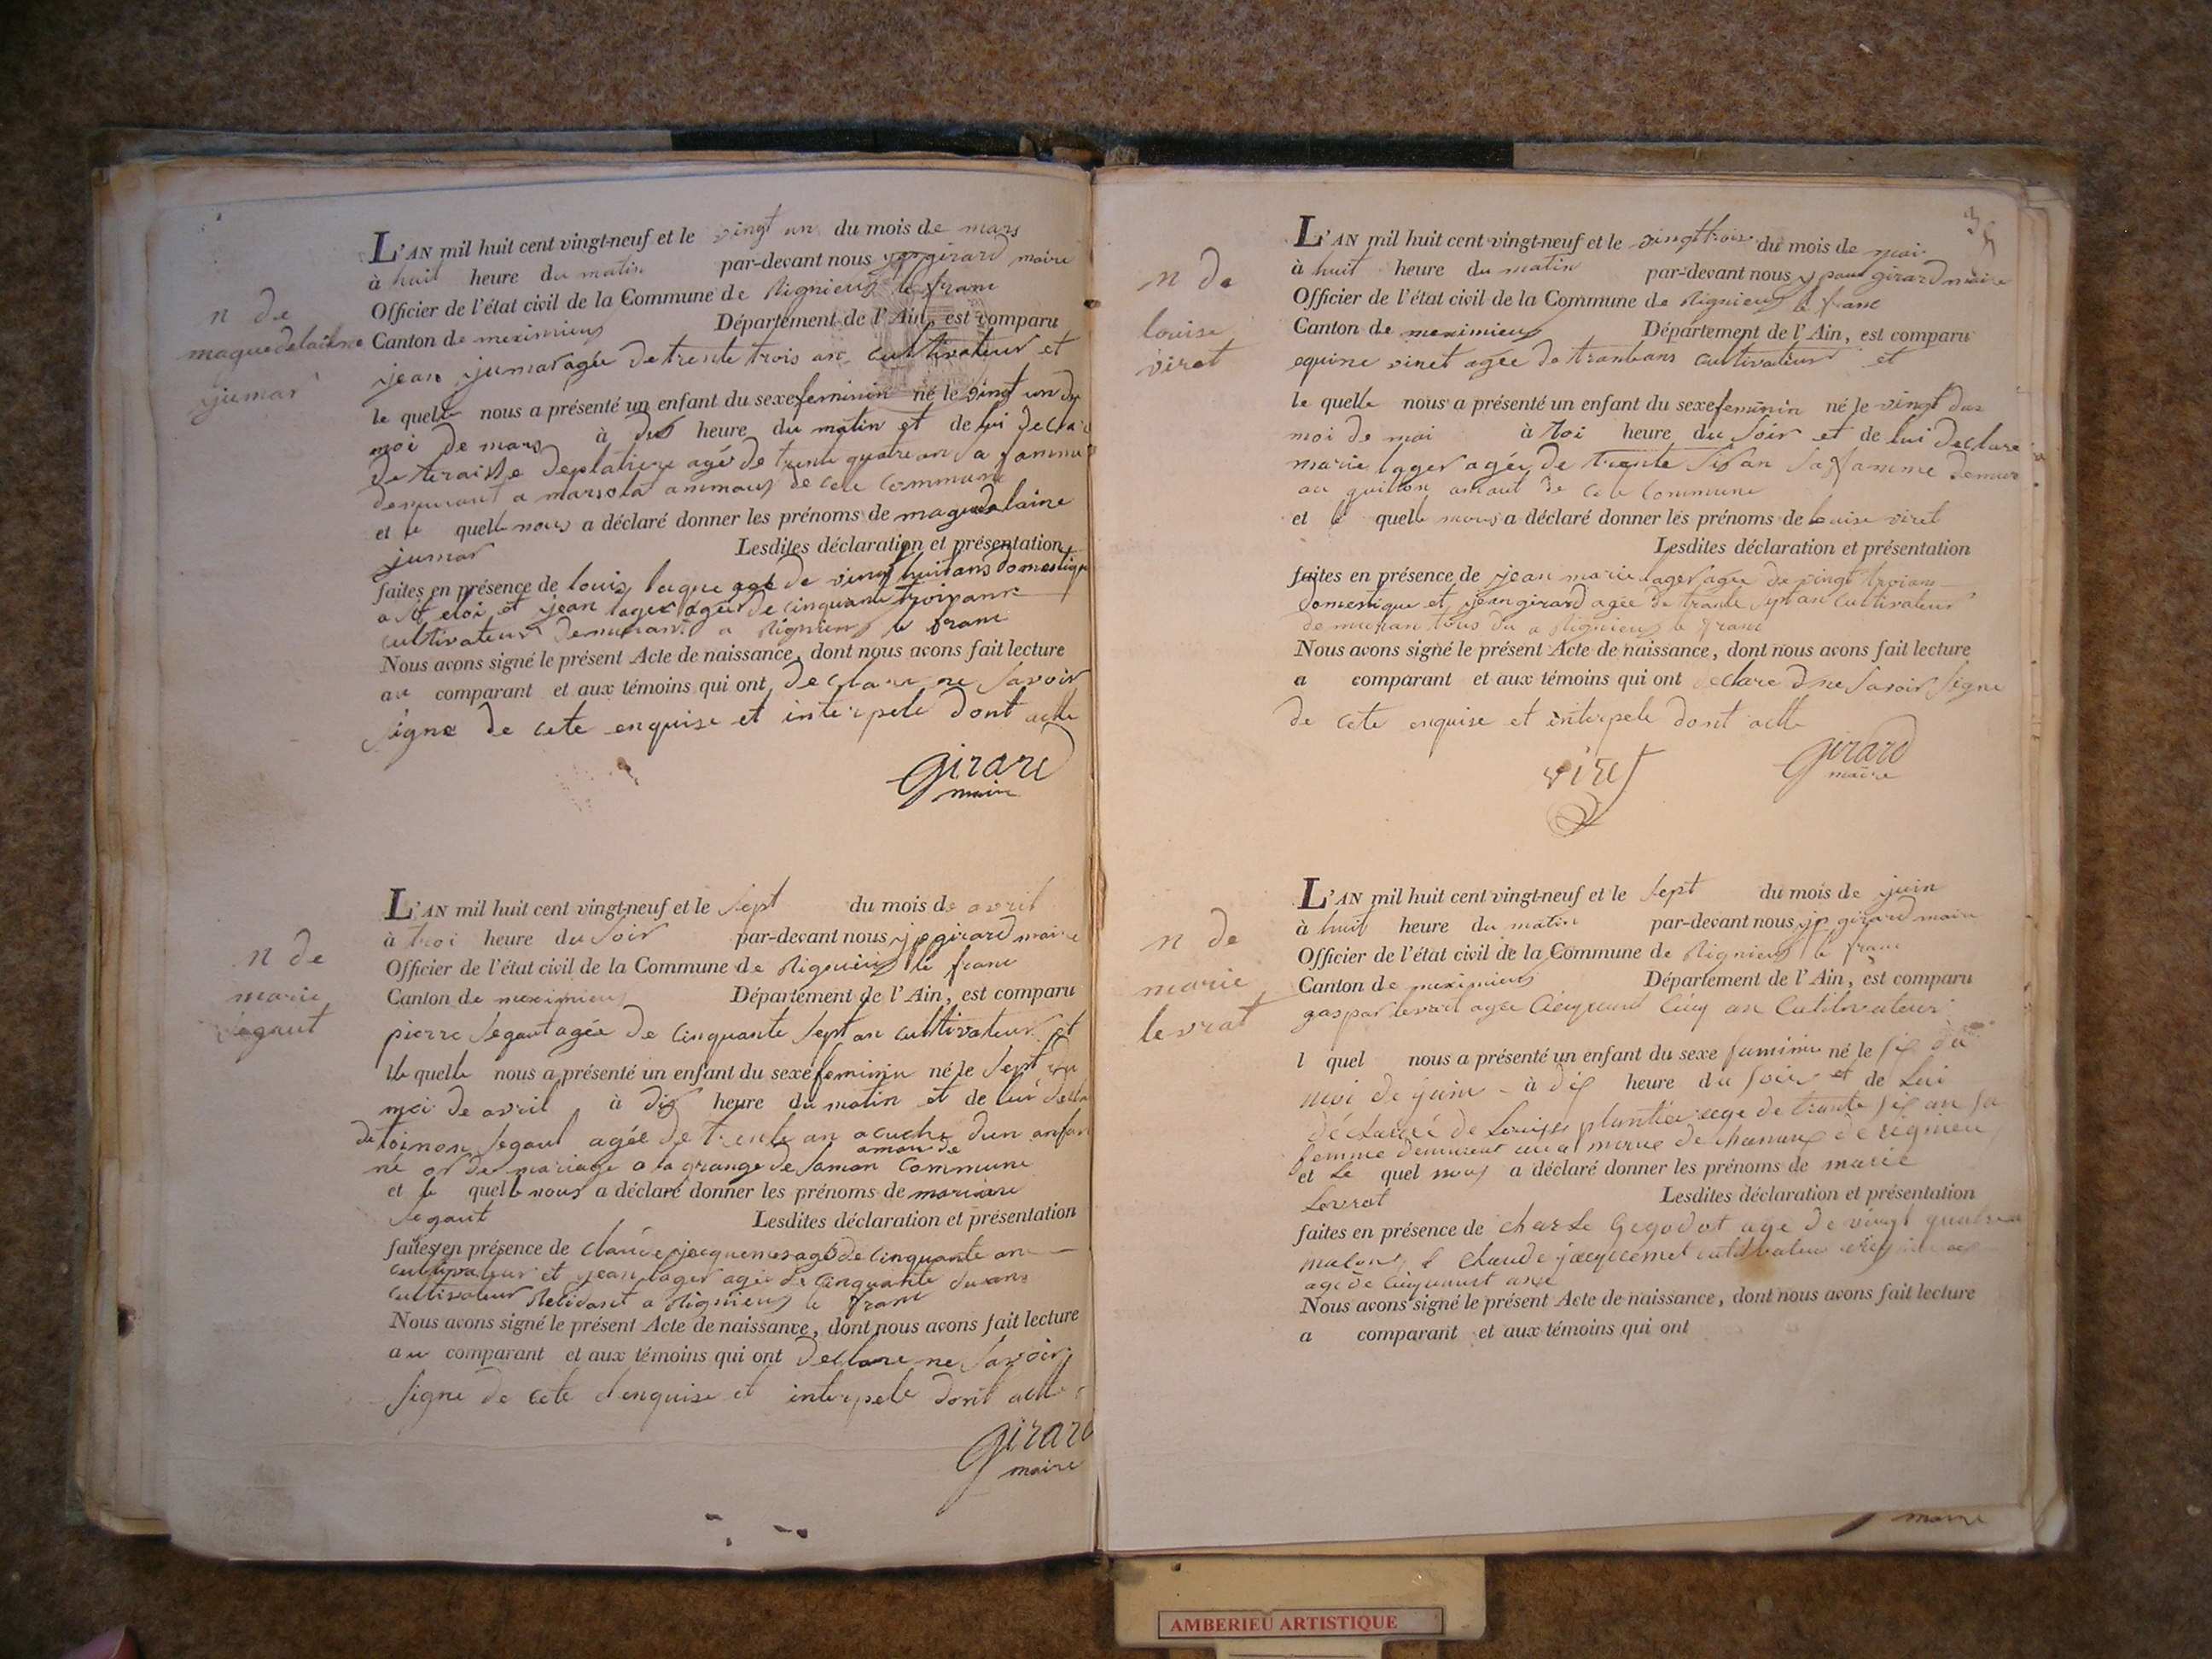 n de
maguedelaine
jumar
L'AN mil huit cent vingt-neuf et le vingt un du mois de mars
à huit heure du matin par-devant nous girard maire
Officier de l'état civil de la Commune de Rignieux le franc
Canton de meximieux Département de l'Ain, est comparu
jean jumar agée de trente trois an cultivateur et
le quelle nous a présenté un enfant du sexe feminin né le vingt un du
moi de mars à heure du matin et de lui declare
de deplatiere agé de trente quatre an sa famme
demurant a de cete commune
et le quelle nous a déclaré donner les prénoms de maguedelaine
jumar Lesdites déclaration et présentation
faites en présence de louis agé de vingt huit ans domestique
a St eloi et jean lager agée de cinquante troix ans
cultivateur demurant a Rignieux le franc
Nous avons signé le présent Acte de naissance, dont nous avons fait lecture
au comparant et aux témoins qui ont declare ne savoir
signe de cete enquise et interpele dont acte
girard
maire
n de
marie
segaut
L'AN mil huit cent vingt-neuf et le sept du mois de avril
à troi heure du soir par-devant nous jp girard maire
Officier de l'état civil de la Commune de Rignieux le franc
Canton de meximieux Département de l'Ain, est comparu
pierre segaut agée de cinquante sept an cultivateur et
le quelle nous a présenté un enfant du sexe feminin né le sept du
moi de avril à dix heure du matin et de lui
de toinon segaut agée de trente an acuche dun anfan
né or de mariage a la grange de commune
et le quelle nous a déclaré donner les prénoms de
segaut Lesdites déclaration et présentation
faites en présence de claude agé de cinquante an
cultivateur et jean lager agée de cinquante ans
cultivateur a Rignieux le franc
Nous avons signé le présent Acte de naissance, dont nous avons fait lecture
au comparant et aux témoins qui ont declare ne savoir
signe de cete enquise et interpele dont acte
girard
maire
35
n de
louise
viret
L'AN mil huit cent vingt-neuf et le vingt trois du mois de mai
à huit heure du matin par-devant nous girard maire
Officier de l'état civil de la Commune de Rignieux le franc
Canton de meximieux Département de l'Ain, est comparu
viret agée de cultivateur et
le quelle nous a présenté un enfant du sexe feminin né le vingt
moi de mai à heure du soir et de lui declare
marie lager agée de trente an sa famme
de cete commune
et le quelle nous a déclaré donner les prénoms de louise viret
Lesdites déclaration et présentation
faites en présence de jean marie lager agée de vingt
domestique et jean girard agée de trante an cultivateur
a Rignieux le franc
Nous avons signé le présent Acte de naissance, dont nous avons fait lecture
a comparant et aux témoins qui ont declare savoir signe
de cete enquise et interpele dont acte
viret
girard
maire
n de
marie
levrat
L'AN mil huit cent vingt-neuf et le sept du mois de juin
à huit heure du matin par-devant nous jp girard maire
Officier de l'état civil de la Commune de Rignieux le franc
Canton de meximieux Département de l'Ain, est comparu
gaspar levrat agée an
l quel nous a présenté un enfant du sexe né le six du
moi de juin à dix heure du soir et de lui
de Louise plantier age de trante six an sa
femme de
et Le quel nous a déclaré donner les prénoms de marie
Levrat Lesdites déclaration et présentation
faites en présence de charle age de vingt quatre
agé de
Nous avons signé le présent Acte de naissance, dont nous avons fait lecture
a comparant et aux témoins qui ont
maire
AMBERIEU ARTISTIQUE